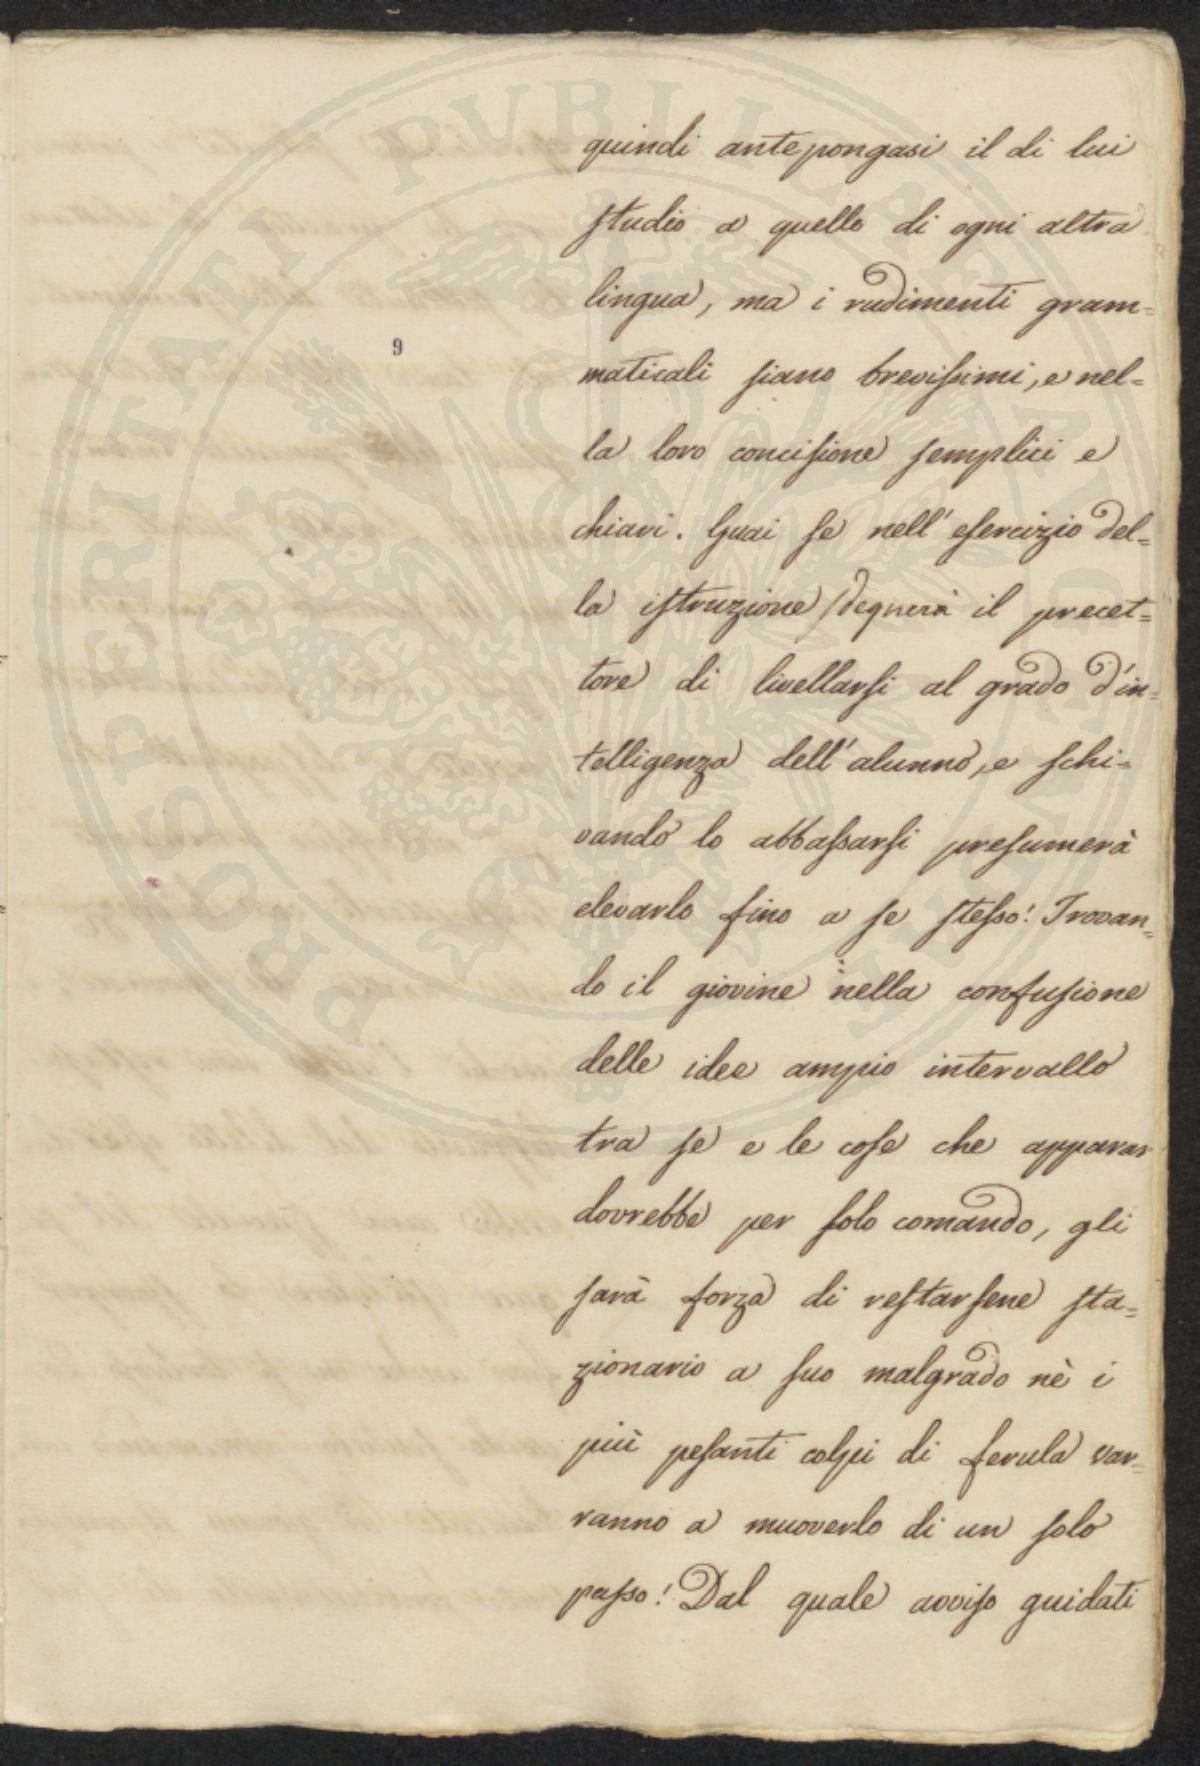 PROSPERITATI PVBLICAE AVGENDAE
9
quindi antepongasi il di lui
studio a quello di ogni altra
lingua, ma i rudimenti gram=
maticali siano brevissimi, e nel=
la loro concisione semplici e
chiari. Guai se nell' esercizio del=
la istruzione sdegnerà il precet=
tore di livellarsi al grado d'in=
telligenza dell' alunno, e schi=
vando lo abbassarsi presumerà
elevarlo fino a se stesso! Trovan=
do il giovine nella confusione
delle idee ampio intervallo
tra se e le cose che apparar
dovrebbe per solo comando, gli
sarà forza di restarsene sta=
zionario a suo malgrado nè i
più pesanti colpi di ferula var=
ranno a muoverlo di un solo
passo! Dal quale avviso guidati